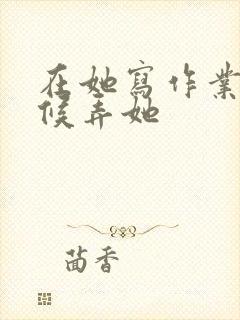 在她寫作業
候弄她
茴香